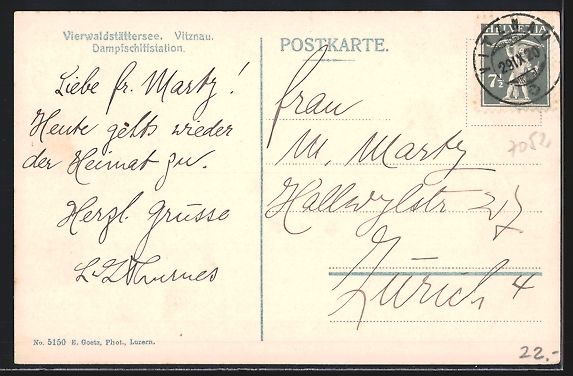 Vierwaldstättersee. Vitznau.
Dampfschiffstation.
Liebe fr. Martz!
Heute gehts wieder
der Heimat zu.
Herzl. Grüsse
POSTKARTE.
HELVETIA
7½
29.IX.20
7052
Frau
M. Martz
Hallwylstr 27
Zürich 4
No. 5150 E. Goetz, Phot., Luzern.
22.-